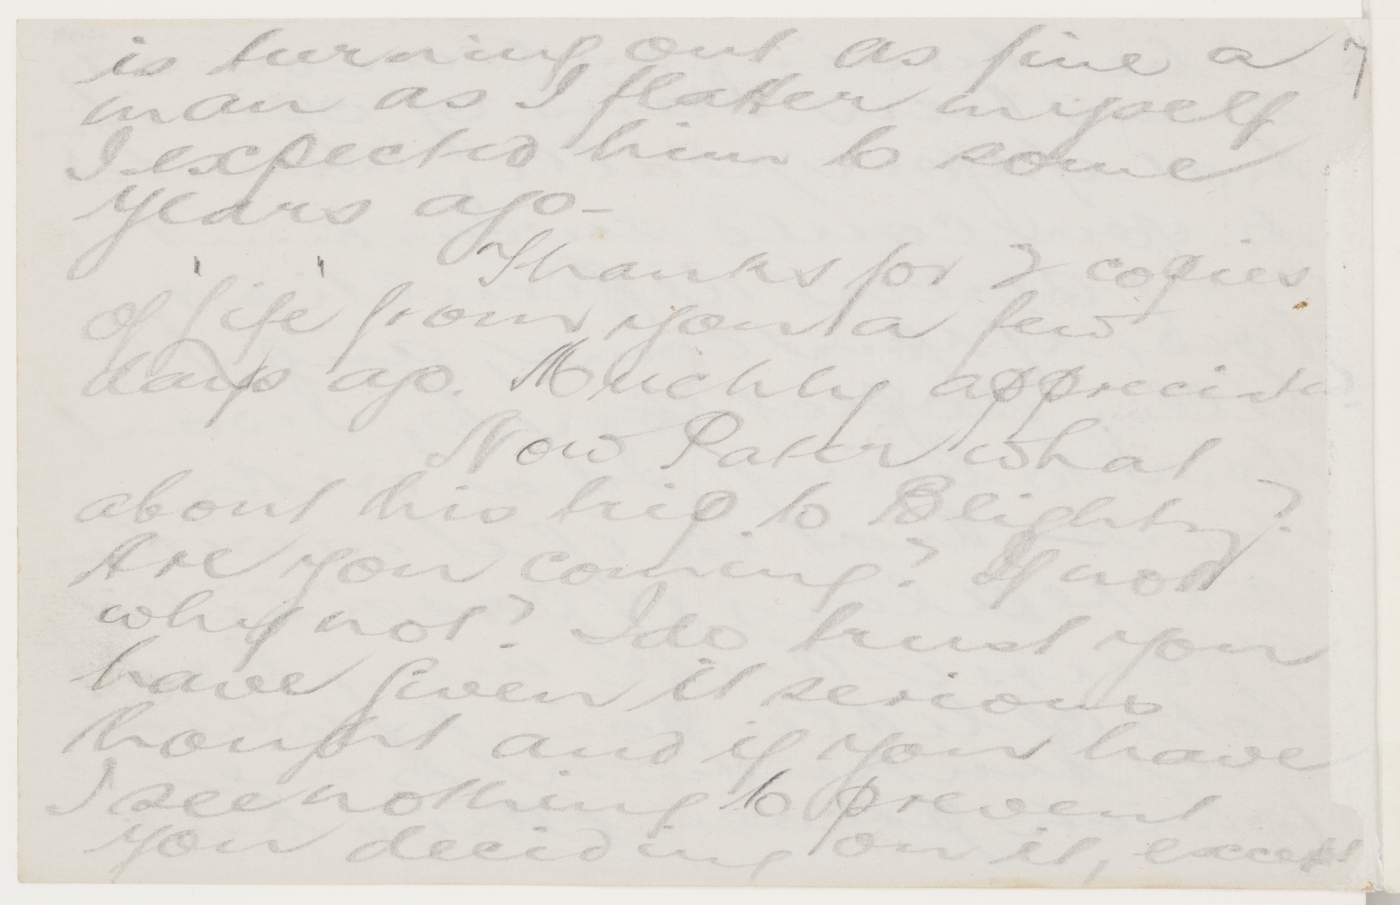 7
is turning out as fine a
man as I flatter myself
I expected him to some
years ago -
Thanks for 2 copies
of "Life" from you a few
days ago. Muchly appreciated.
Now Pater what
about his trip to Blighty?
Are you coming? If not
why not? I do trust you
have given it serious
thought and if you have
I see nothing to prevent
you deciding on it, except